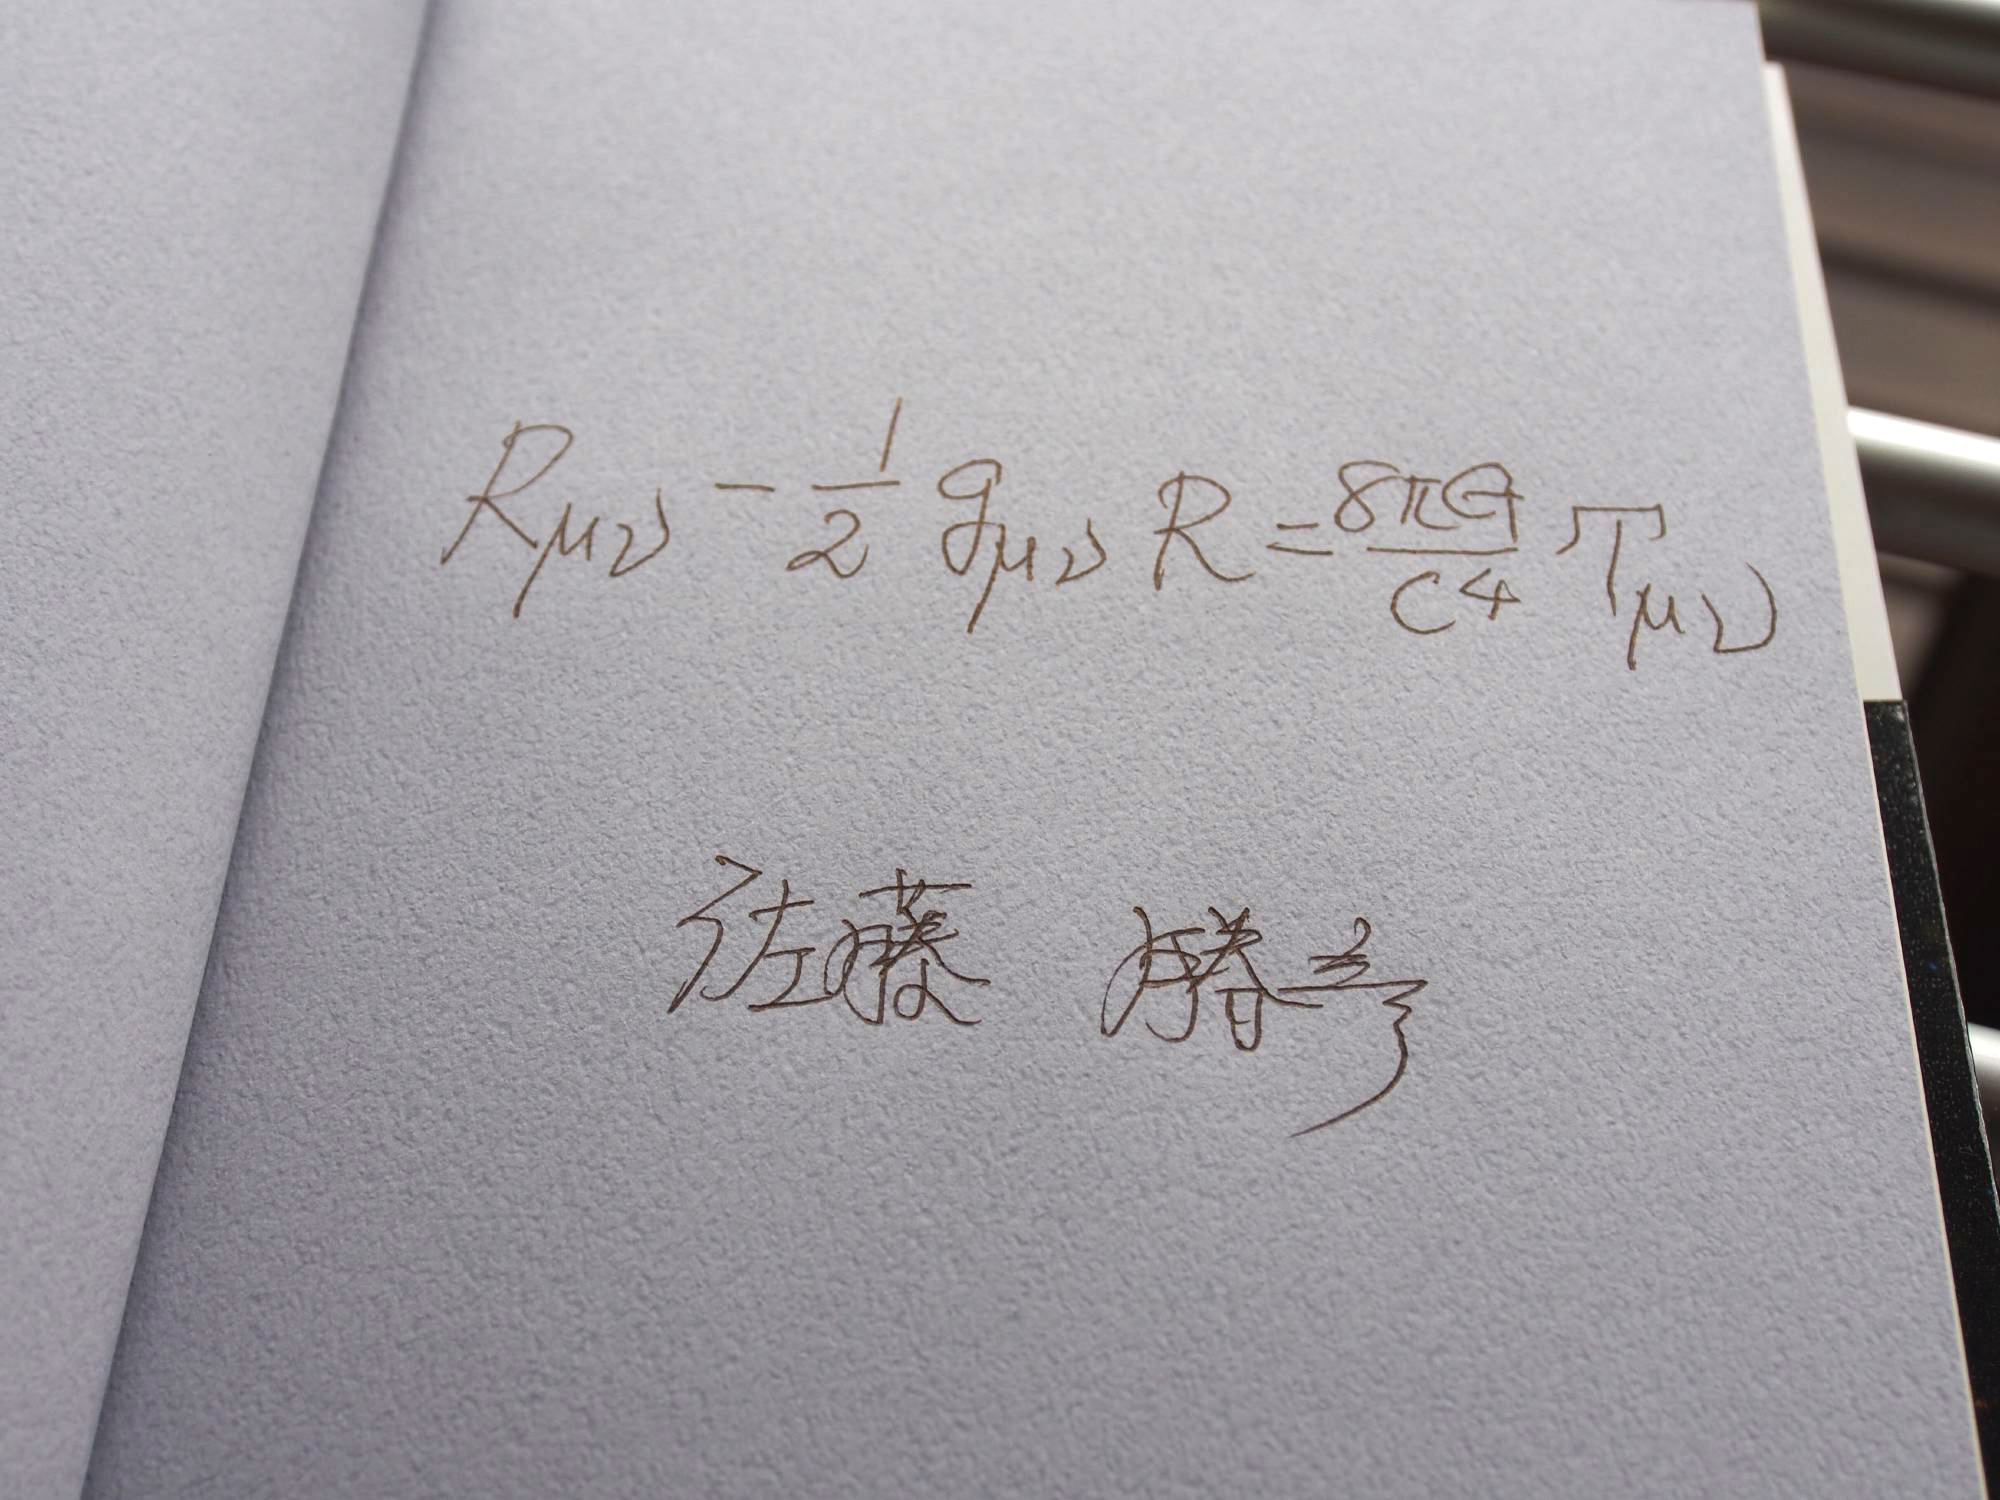 Rμν - 1/2 gμν R = 8πG/c4 Tμν
佐藤 勝彦